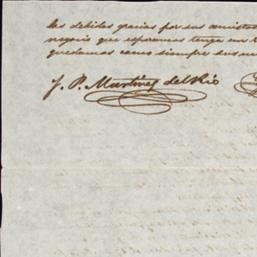 las debidas gracias por sus
negocio que esperamos tenga un
quedamos como siempre sus
J. P. Martinez del Rio